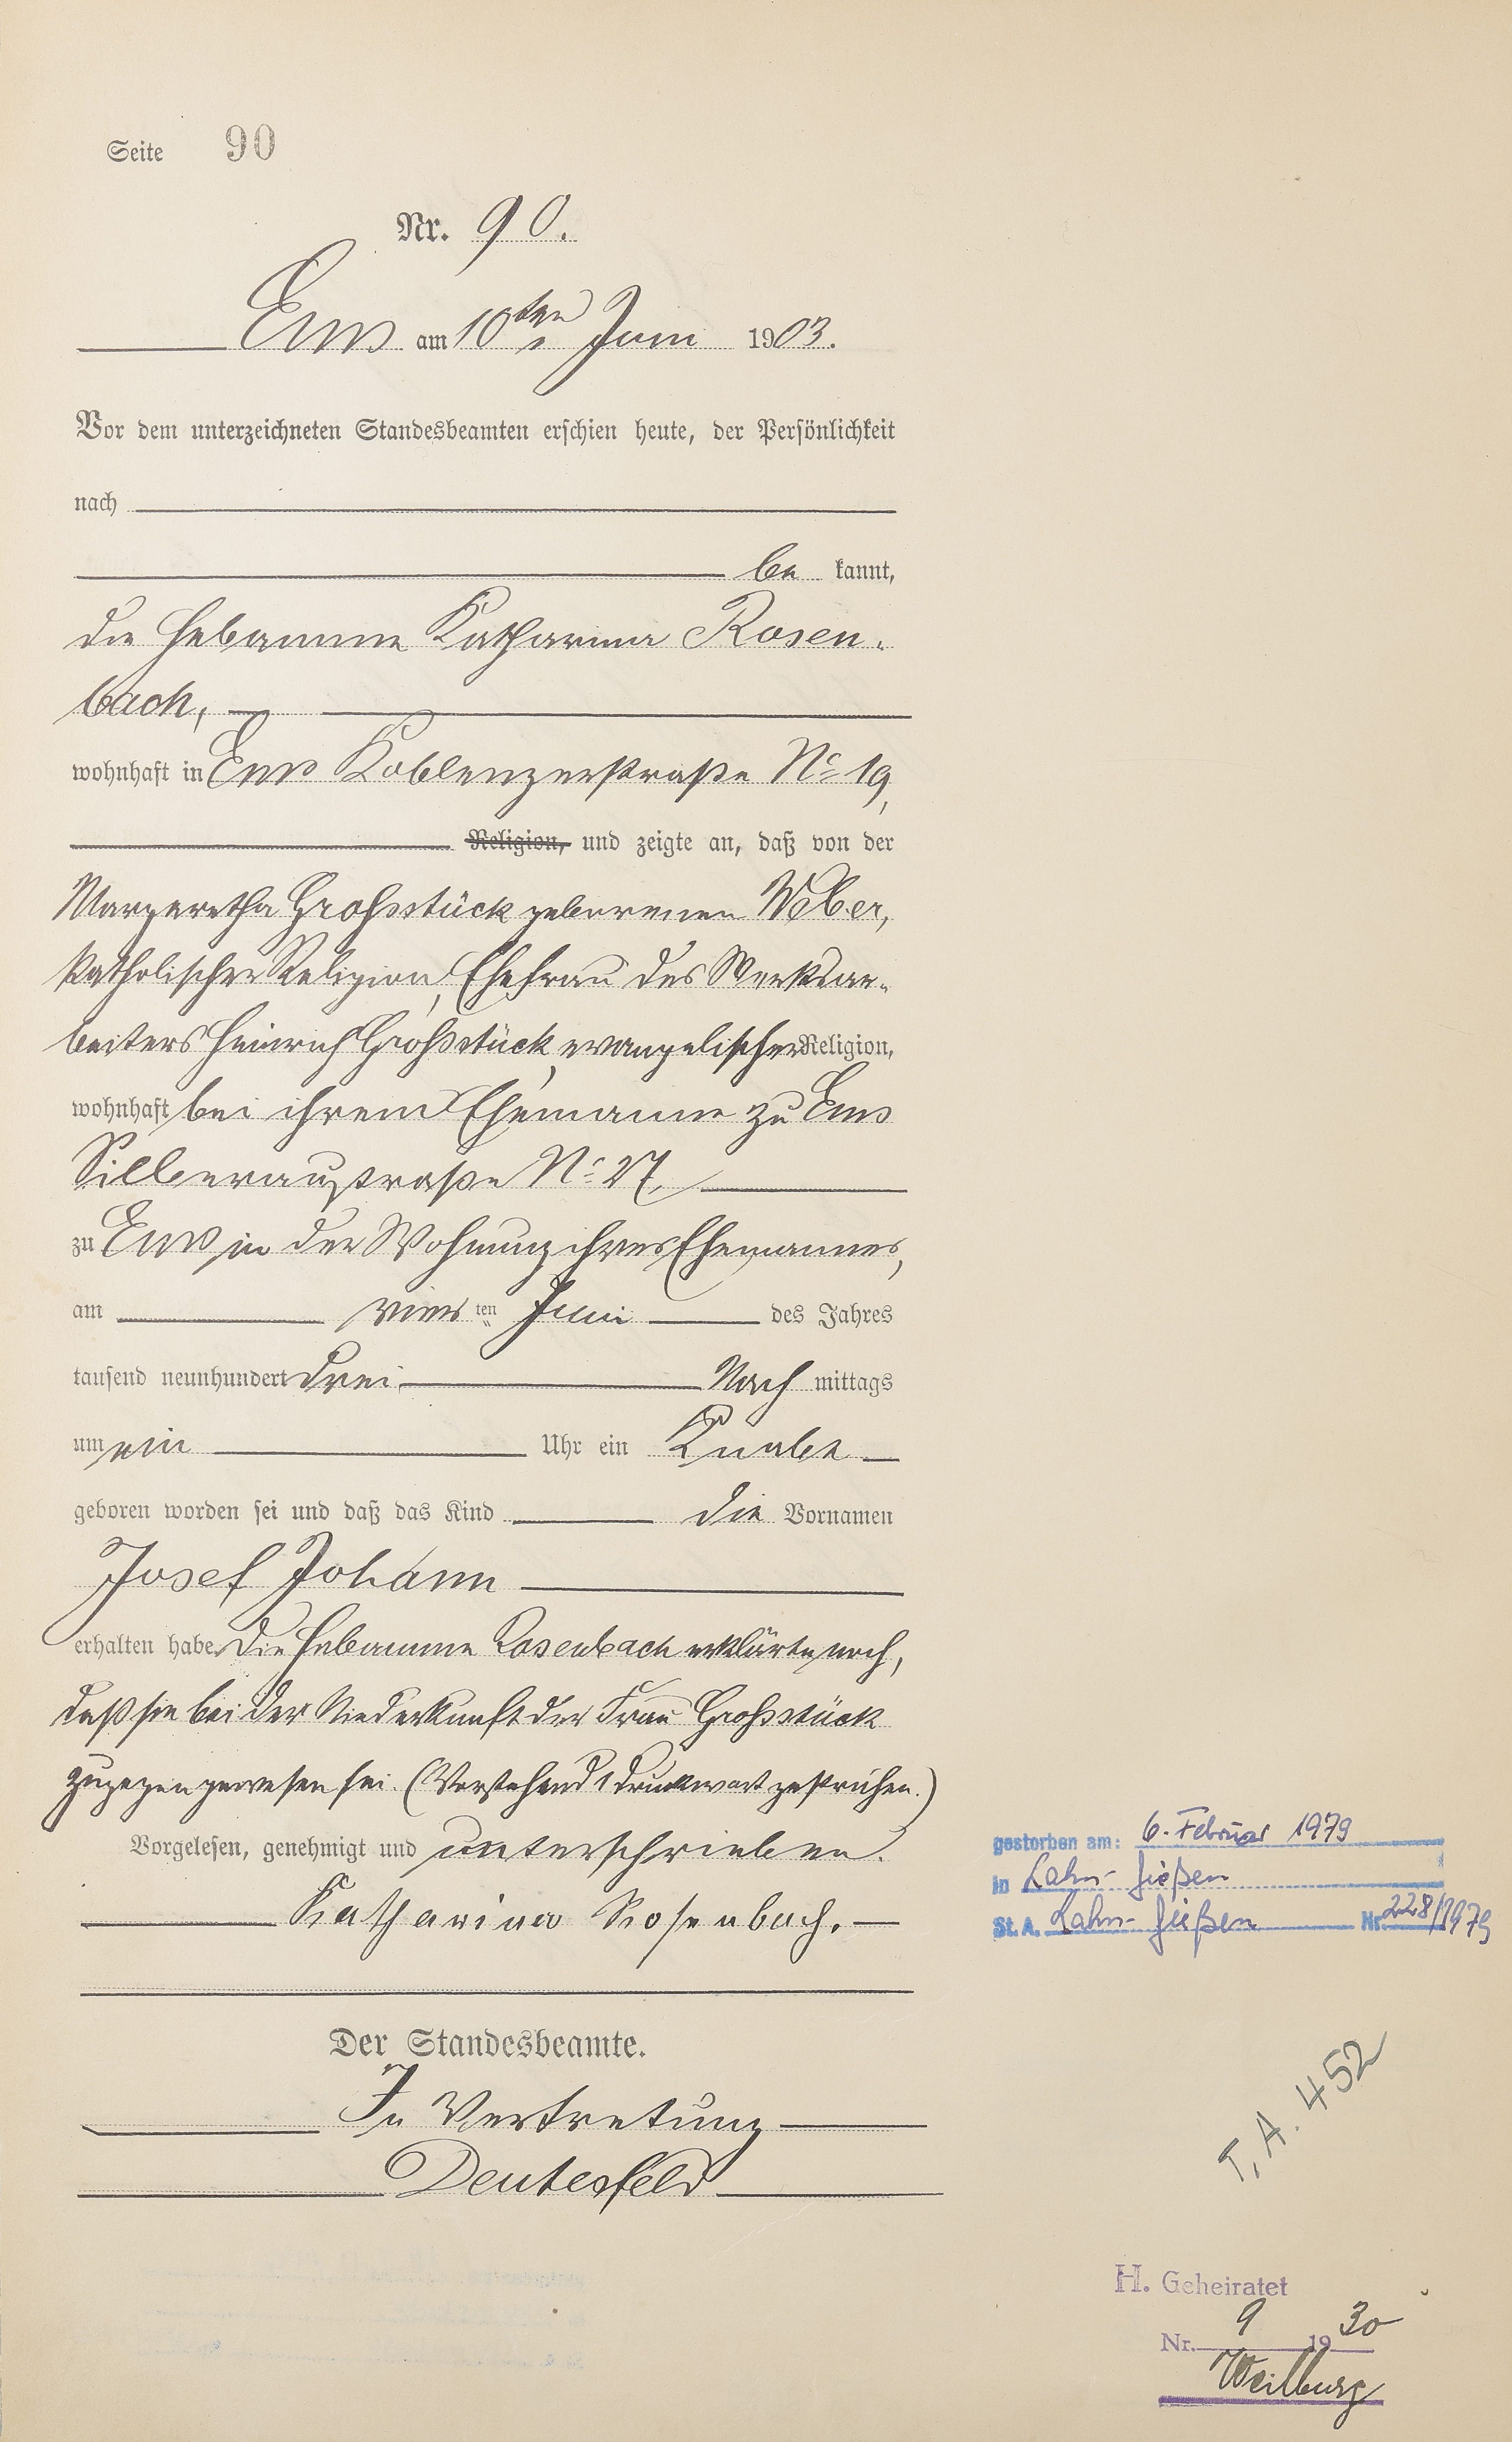 Seite 90
Nr. 90.
Ems am 10ten Juni 1903.
Vor dem unterzeichneten Standesbeamten erschien heute, der Persönlichkeit
nach
be kannt,
die Hebamme Katharina Rosen-
bach,
wohnhaft in Ems Koblenzerstraße No 19,
Religion, und zeigte an, daß von der
Margaretha Großstück geborenen Weber,
katholischer Religion, Ehefrau des Werksar-
beiters Heinrich Großstück, evangelischer Religion,
wohnhaft bei ihrem Ehemanne zu Ems
Silberaustraße No 27,
zu Ems in der Wohnung ihres Ehemannes,
am vier ten Juni des Jahres
tausend neunhundert drei Nach mittags
um ein Uhr ein Knabe
geboren worden sei und daß das Kind die Vornamen
Josef Johann
erhalten habe. Die Hebamme Rosenbach erklärte noch,
daß sie bei der Niederkunft der Frau Großstück
zugegen gewesen sei. (Vorstehend 1 Druckwort gestrichen.)
Vorgelesen, genehmigt und unterschrieben.
Katharina Rosenbach.
Der Standesbeamte.
In Vertretung
Deutesfeld
gestorben am: 6. Februar 1979
in Lahn-Gießen
St. A. Lahn-Gießen Nr. 228/1979
T. A. 452
H. Geheiratet
Nr. 9 1930
Weilburg